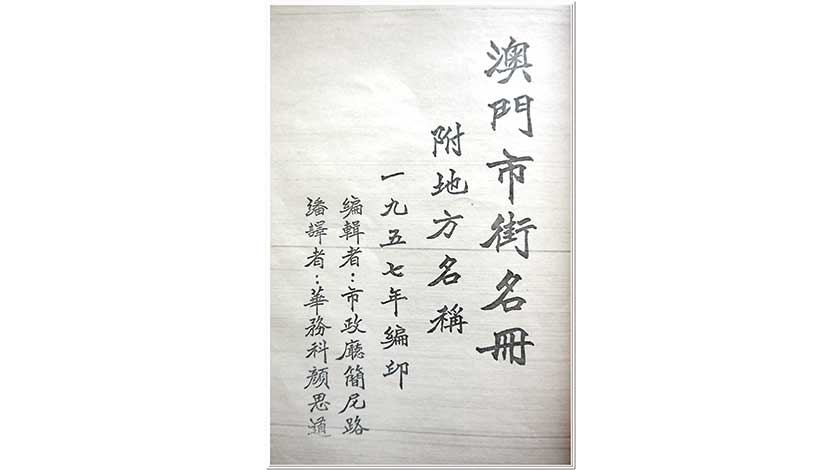 澳門市街名冊
附地方名稱
一九五七年編印
編輯者：市政廳簡尼路
繙譯者：華務科顏思道